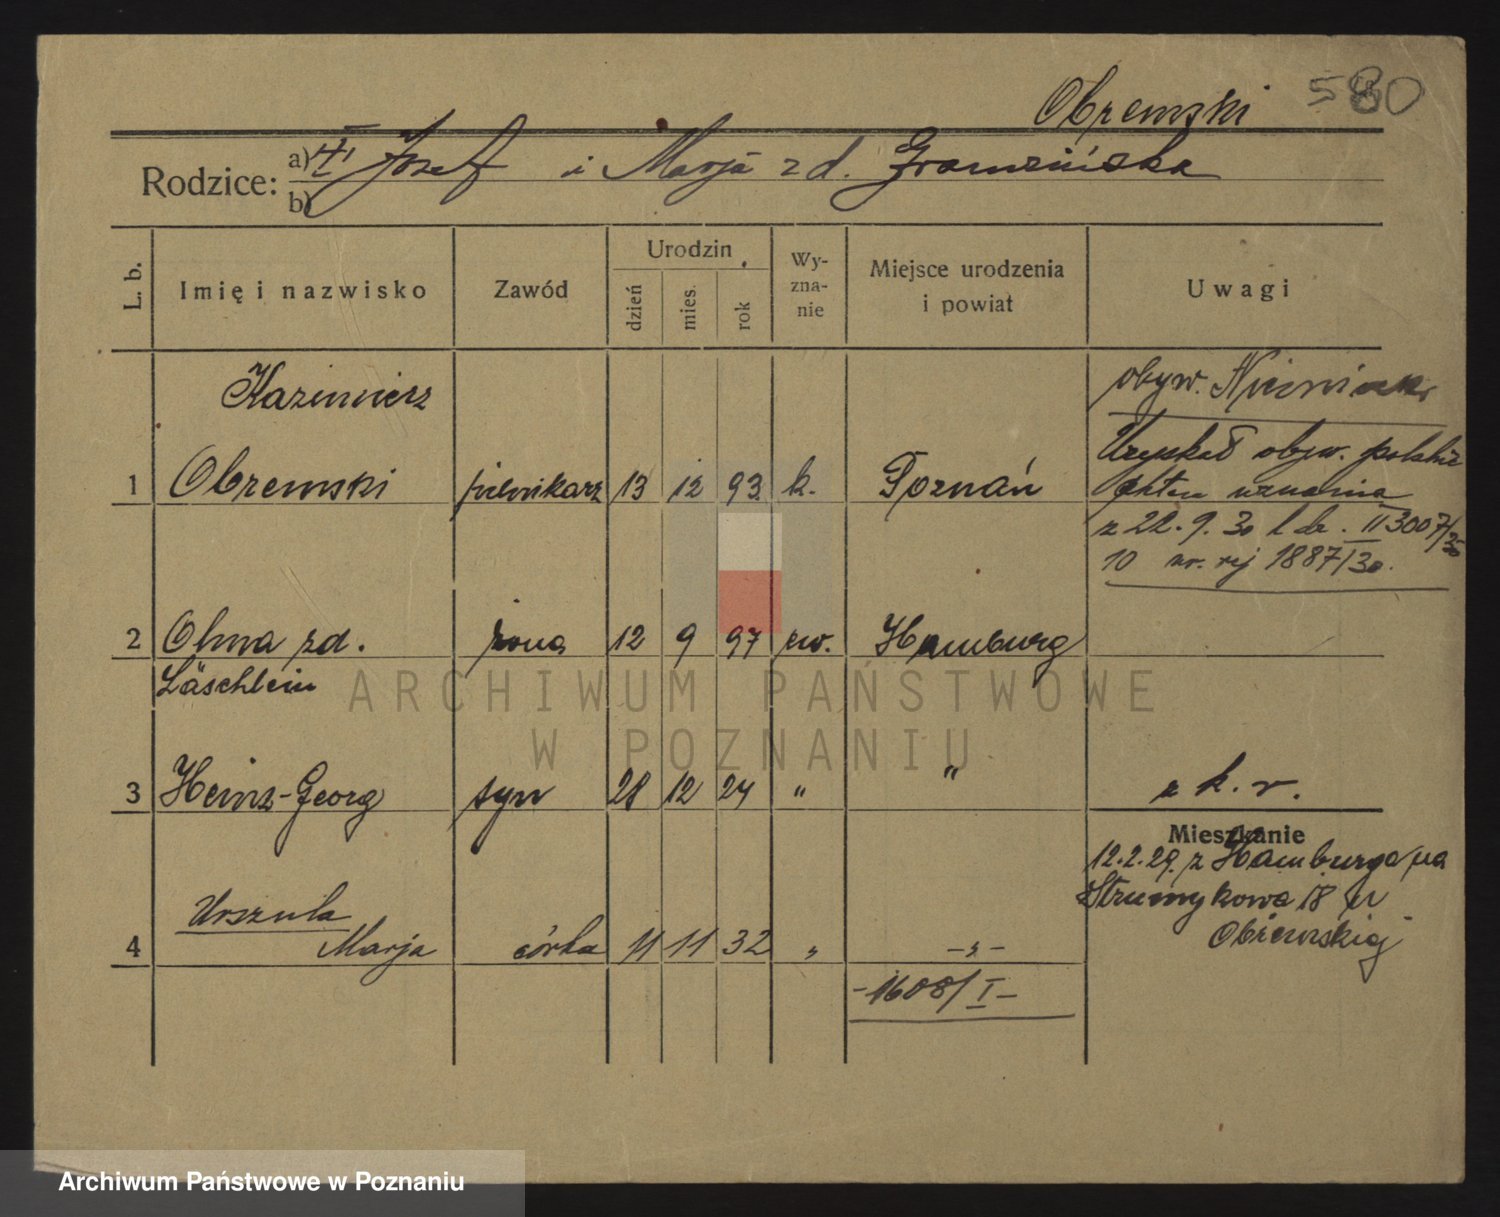 Obremski 580
Rodzice: a) Józef i Marja z d. Gramzińska
b)
L. b. Imię i nazwisko Zawód Urodzin dzień mies. rok Wy-zna-nie Miejsce urodzenia i powiat Uwagi
Kazimierz obyw. Niemieck.
1 Obremski pilnikarz 13 12 93 k. Poznań
Uzyskał obyw. polskie
aktem uznania
z 22.9.30 l. dz. II 3007/30
10 nr. rej 1887/30.
2 Olma zd. żona 12 9 97 ew. Hamburg
Läschlein
ARCHIWUM PAŃSTWOWE
W POZNANIU
3 Heinz-Georg syn 28 12 24 " " z k. r.
Mieszkanie
12.2.29. z Hamburga na
Strumykowa 18 u
Obremskiej
Urszula
4 Marja córka 11 11 32 " -"-
-1608/I-
Archiwum Państwowe w Poznaniu